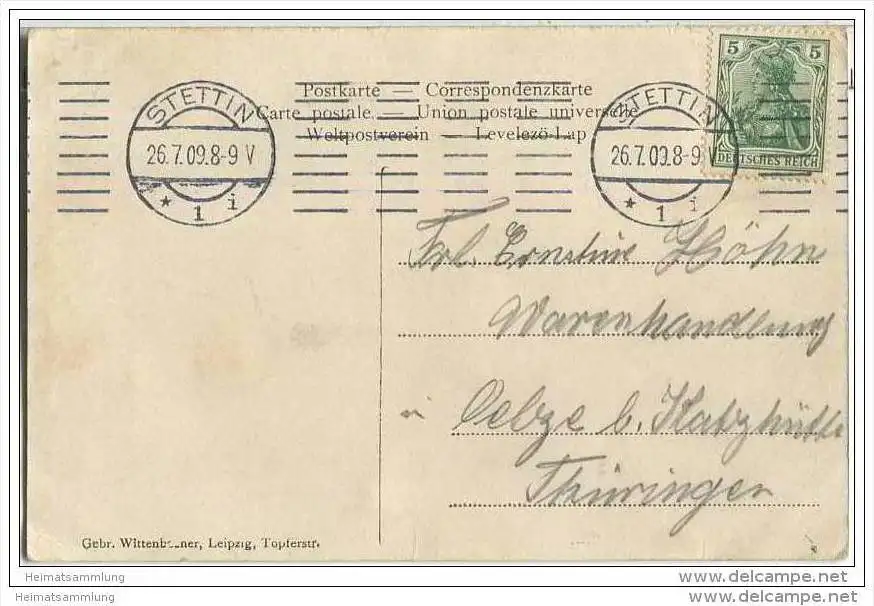 Postkarte — Correspondenzkarte
Carte postale — Union postale universelle
Weltpostverein — Levelező-Lap
STETTIN
26.7.09.8-9 V
* 1 i
STETTIN
26.7.09.8-9 V
* 1 i
5 5
DEUTSCHES REICH
Frl. Ernstine Höhn
Warenhandlung
in Oelze b. Katzhütte
Thüringen
Gebr. Leipzig, Topferstr.
Heimatsammlung
Heimatsammlung
www.delcampe.net
www.delcampe.net